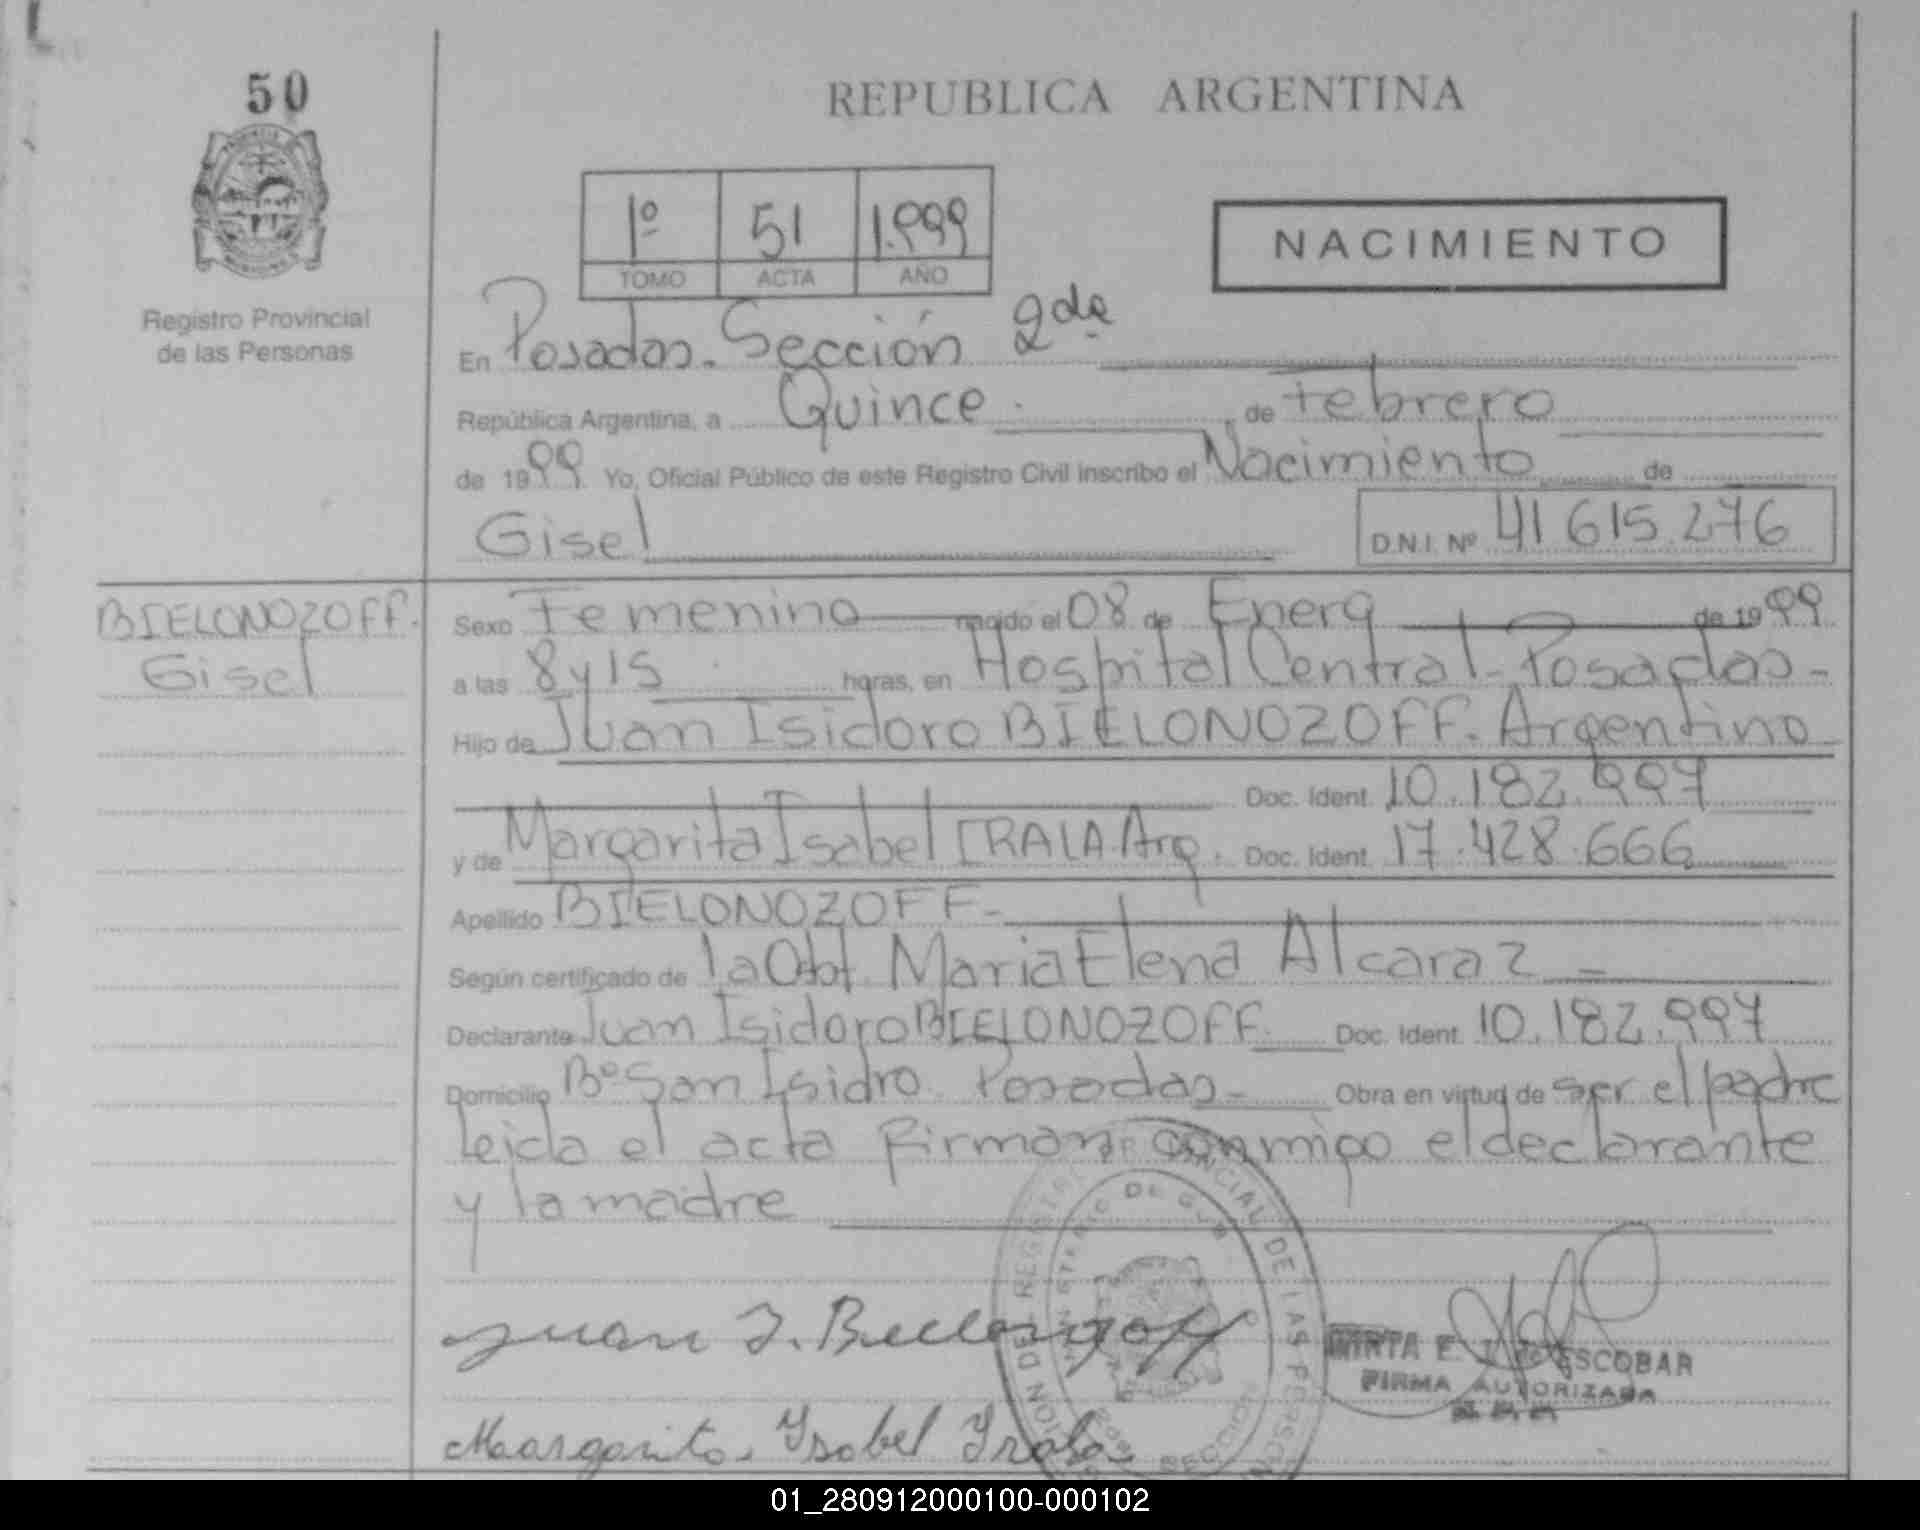 50
REPUBLICA ARGENTINA
1º 51 1.999
TOMO ACTA AÑO
NACIMIENTO
Registro Provincial
de las Personas
En Posadas. Sección 2da
República Argentina, a Quince de Febrero
de 1999 Yo, Oficial Público de este Registro Civil inscribo el Nacimiento de
Gisel D.N.I. Nº 41 615.276
BIELONOZOFF.
Gisel
Sexo Femenino nacido el 08 de Enero de 1999
a las 8 y 15 horas, en Hospital Central - Posadas -
Hijo de Juan Isidoro BIELONOZOFF. Argentino
Doc. Ident. 10.182.997
y de Margarita Isabel IRALA Arg. Doc. Ident. 17.428.666
Apellido BIELONOZOFF -
Según certificado de la Obst. Maria Elena Alcaraz
Declarante Juan Isidoro BIELONOZOFF. Doc. Ident. 10.182.997
Domicilio Bº San Isidro. Posadas - Obra en virtud de ser el padre
leida el acta firman conmigo el declarante
y la madre
Juan I.
Margarita Isabel Irala
REGISTRO PROVINCIAL DE LAS PERSONAS
MINISTERIO DE
SECCION
MIRTA E. ESCOBAR
FIRMA AUTORIZADA
01_280912000100-000102